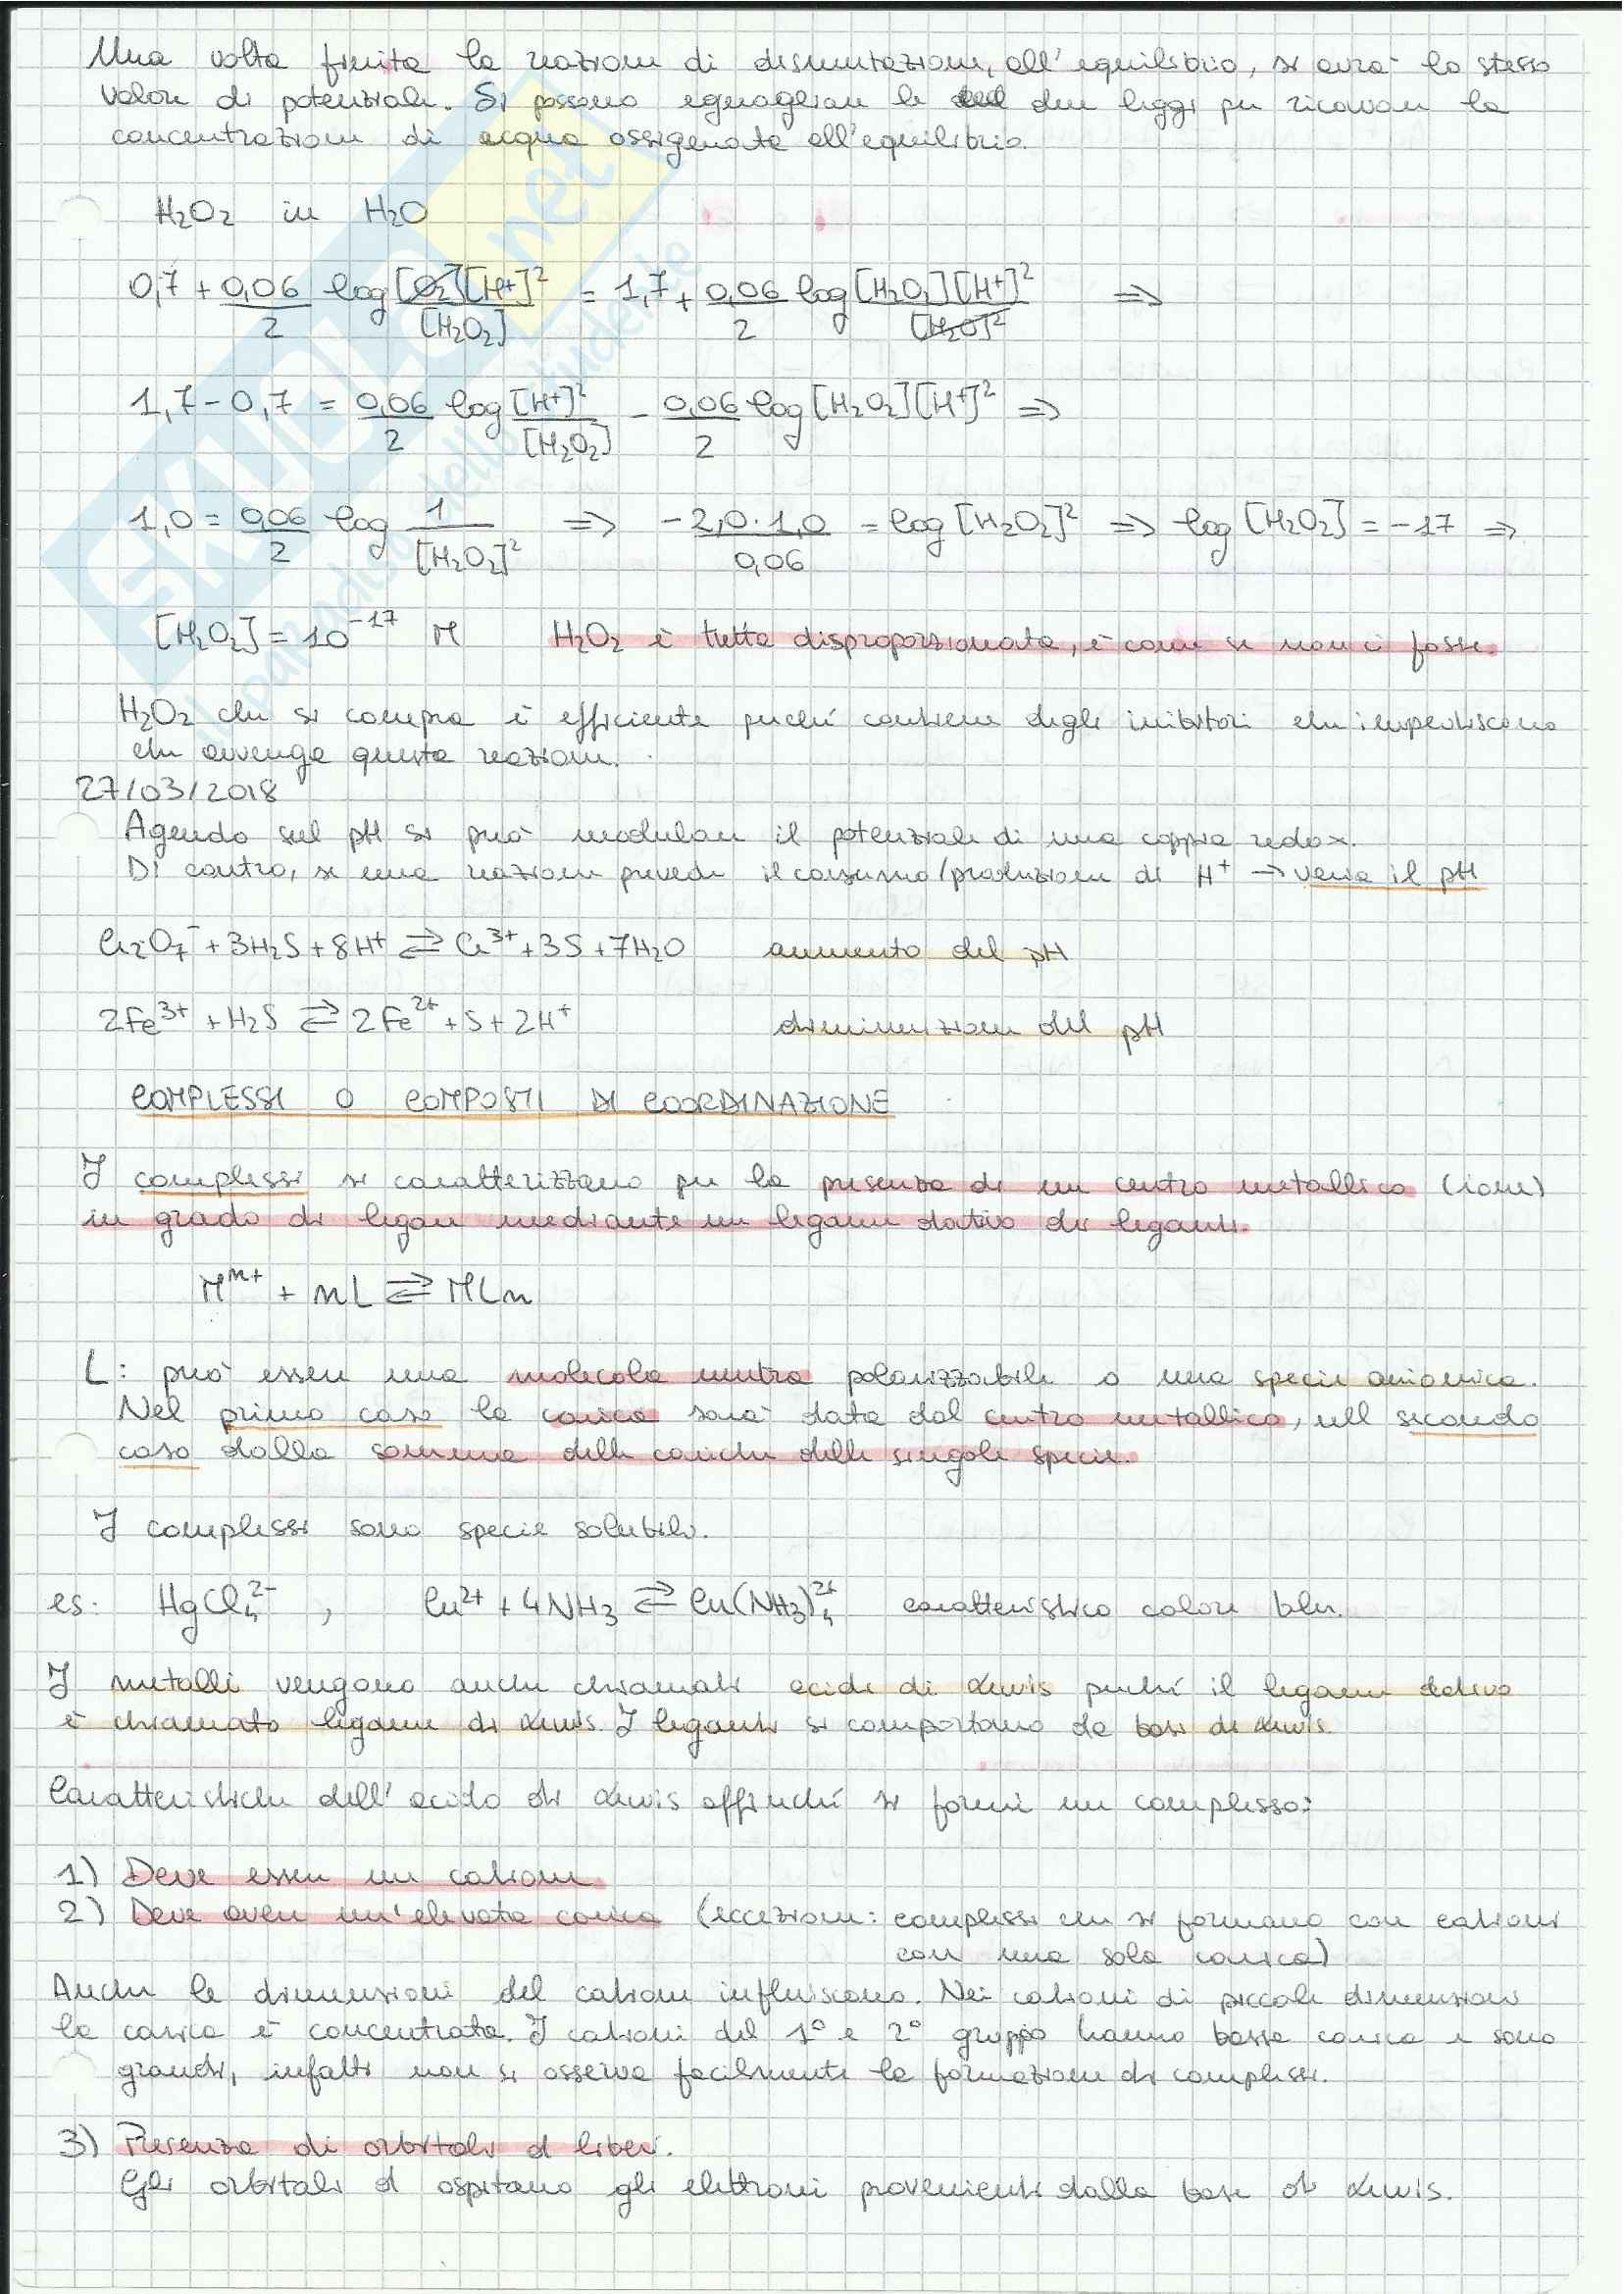 Una volta finita la reazione di dismutazione, all'equilibrio, si avrà lo stesso
valore di potenziale. Si possono eguagliare le due leggi per ricavare la
concentrazione di acqua ossigenata all'equilibrio.
H₂O₂ in H₂O
0,7 + 0,06/2 log [O₂][H⁺]²/[H₂O₂] = 1,7 + 0,06/2 log [H₂O₂][H⁺]²/[H₂O]² ⇒
1,7 - 0,7 = 0,06/2 log [H⁺]²/[H₂O₂] - 0,06/2 log [H₂O₂][H⁺]² ⇒
1,0 = 0,06/2 log 1/[H₂O₂]² ⇒ -2,0·1,0/0,06 = log [H₂O₂]² ⇒ log [H₂O₂] = -17 ⇒
[H₂O₂] = 10⁻¹⁷ M H₂O₂ è tutta disproporzionata, è come se non ci fosse.
H₂O₂ che si compra è efficiente perché contiene degli inibitori che impediscono
che avvenga questa reazione.
27/03/2018
Agendo sul pH si può modulare il potenziale di una coppia redox.
Di contro, se una reazione prevede il consumo/produzione di H⁺ → varia il pH
Cr₂O₇⁻ + 3H₂S + 8H⁺ ⇄ Cr³⁺ + 3S + 7H₂O aumento del pH
2Fe³⁺ + H₂S ⇄ 2Fe²⁺ + S + 2H⁺ diminuzione del pH
COMPLESSI O COMPOSTI DI COORDINAZIONE
I complessi si caratterizzano per la presenza di un centro metallico (ione)
in grado di legare mediante un legame dativo dei leganti.
Mᵐ⁺ + nL ⇄ MLn
L: può essere una molecola neutra polarizzabile o una specie anionica.
Nel primo caso la carica sarà data dal centro metallico, nell secondo
caso dalla somma delle cariche delle singole specie.
I complessi sono specie solubili.
es: HgCl₄²⁻ , Cu²⁺ + 4NH₃ ⇄ Cu(NH₃)₄²⁺ caratteristico colore blu.
I metalli vengono anche chiamati acidi di Lewis perché il legame dativo
è chiamato legame di Lewis. I leganti si comportano da basi di Lewis.
Caratteristiche dell'acido di Lewis affinché si formi un complesso:
1) Deve essere un catione
2) Deve avere un'elevata carica (eccezione: complessi che si formano con cationi
con una sola carica)
Anche le dimensioni del catione influiscono. Nei cationi di piccole dimensioni
la carica è concentrata. I cationi del 1° e 2° gruppo hanno bassa carica e sono
grandi, infatti non si osserva facilmente la formazione di complessi.
3) Presenza di orbitali d liberi.
Gli orbitali d ospitano gli elettroni provenienti dalla base di Lewis.